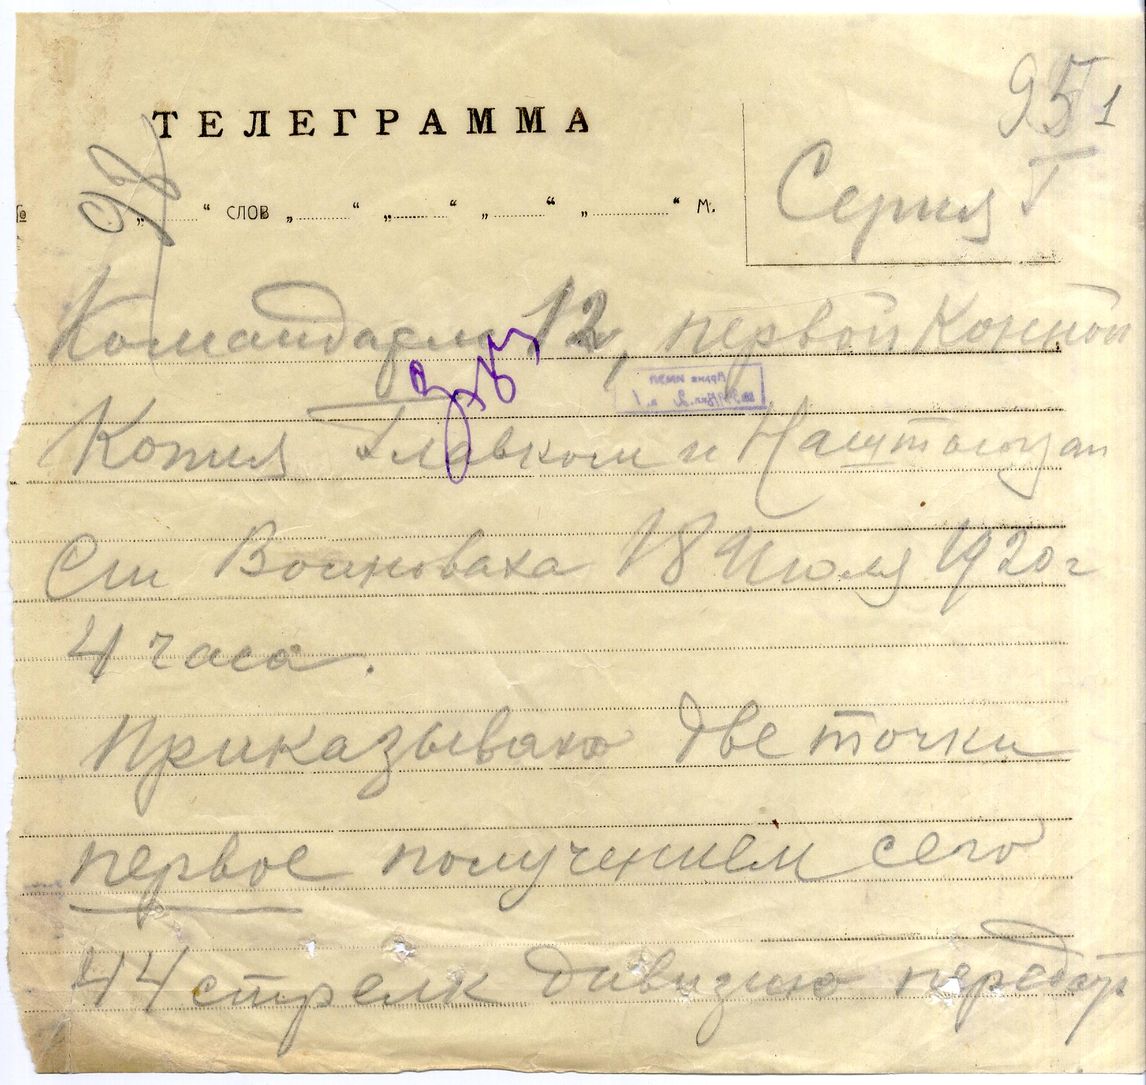 95 1
ТЕЛЕГРАММА
98
№ „ “ слов „ “ „ “ „ “ „ “ м.
Серия Г
Командарм 12, первой Конной
Копия Главком и Наштаюзап
Ст Волноваха 18 Июля 1920 г
4 часа.
Приказываю две точки
первое получением сего
44 стрелк дивизию передать